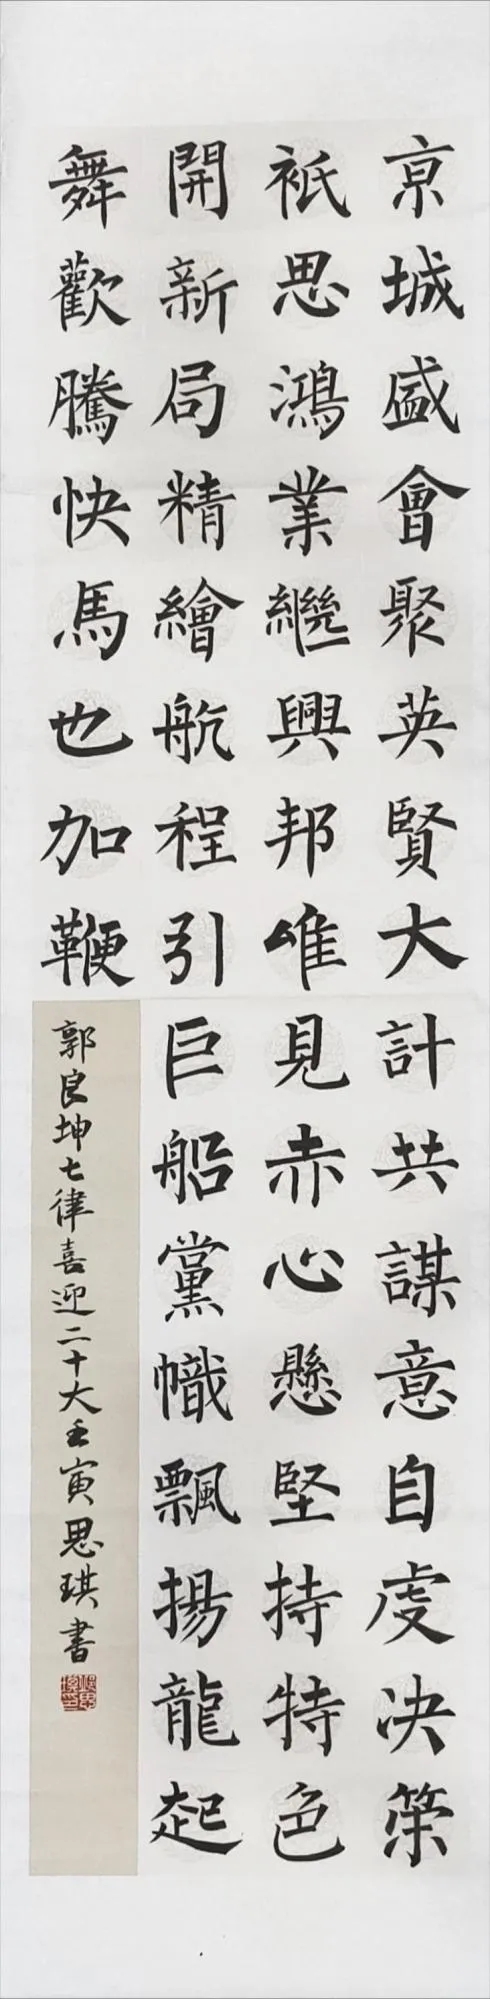 京城盛會聚英賢大計共謀意自虔決策
祇思鴻業繼興邦唯見赤心懸堅持特色
開新局精繪航程引巨船黨幟飄揚龍起
舞歡騰快馬也加鞭
郭良坤七律喜迎二十大壬寅思琪書